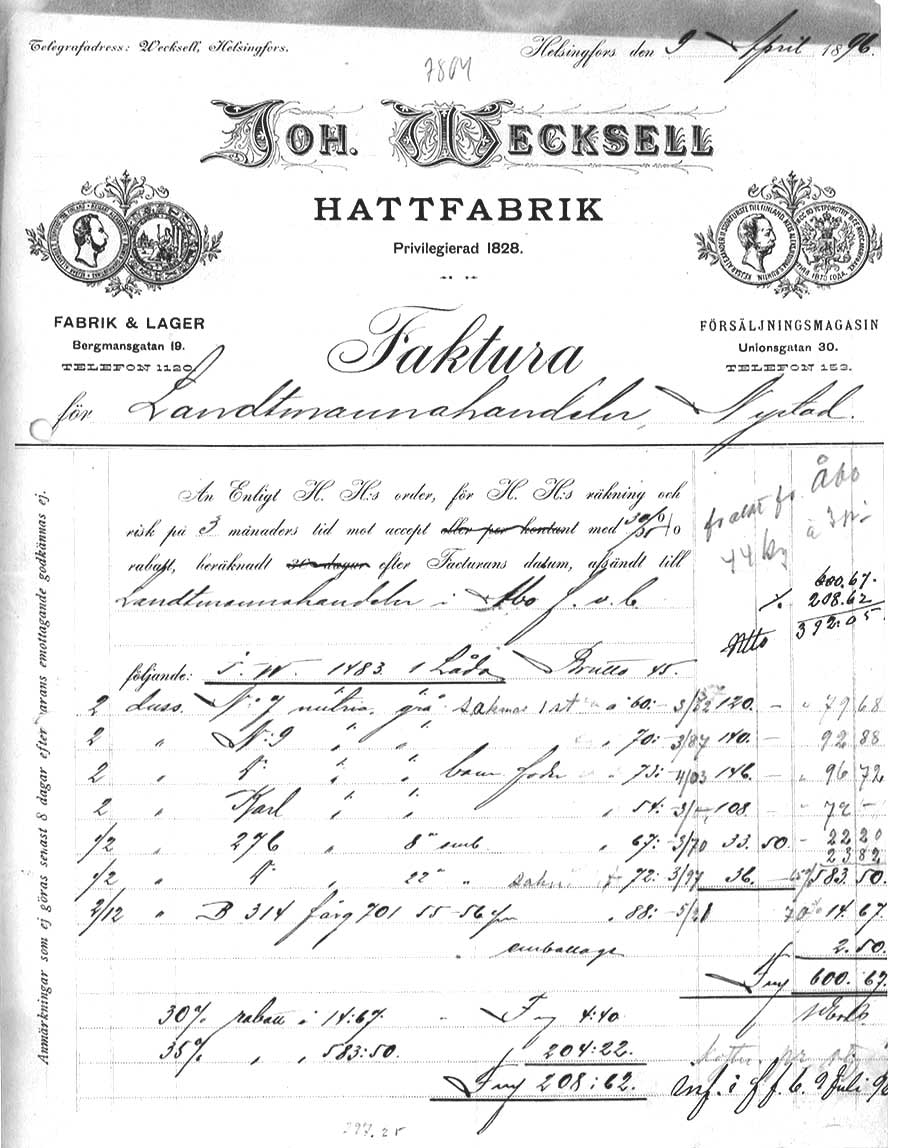 Telegrafadress: Wecksell, Helsingfors.
Helsingfors den 9 April 1896.
7804
JOH. WECKSELL
HATTFABRIK
Privilegierad 1828.
FABRIK & LAGER
Bergmansgatan 19.
TELEFON 1120
FÖRSÄLJNINGSMAGASIN
Unionsgatan 30.
TELEFON 153.
Faktura
för Landtmannahandeln, Nystad.
Anmärkningar som ej göras senast 8 dagar efter varans emottagande godkännas ej.
An Enligt H. H:s order, för H. H:s räkning och
risk på 3 månaders tid mot accept eller per kontant med 30%/35 %
rabatt, beräknadt 30 dagar efter Facturans datum, afsändt till
Landtmannahandeln i Åbo f. v. b
frakt fr Åbo
44 kg à
600.67.
% 208.62
Ntto 392:05
följande: J. W. 1483. 1 Låda Brutto 45.
2 duss. No 7 nutria grå 1 st à 60:- 3/32 120. - 79 68
2 " No 9 " " " 70:- 3/87 140. - 92 88
2 " " " bom foder " 73:- 4/03 146. - 96 72
2 " Karl " " " 54:- 3/- 108. - 72 -
1/2 " 276 " 8" emb " 67:- 3/70 33. 50. - 22 20
23 82
1/2 " " 22" " 72:- 3/97 36. - 583. 50.
2/12 " B 314 färg 701 55-56 c/m " 88:- 5/21 70% 14. 67.
" emballage 2. 50.
Fmj 600. 67.
30% rabatt å 14:67. - Fmj 4:40.
35% " " 583:50. " 204:22.
Fmj 208:62.
9 Juli 96
397.25